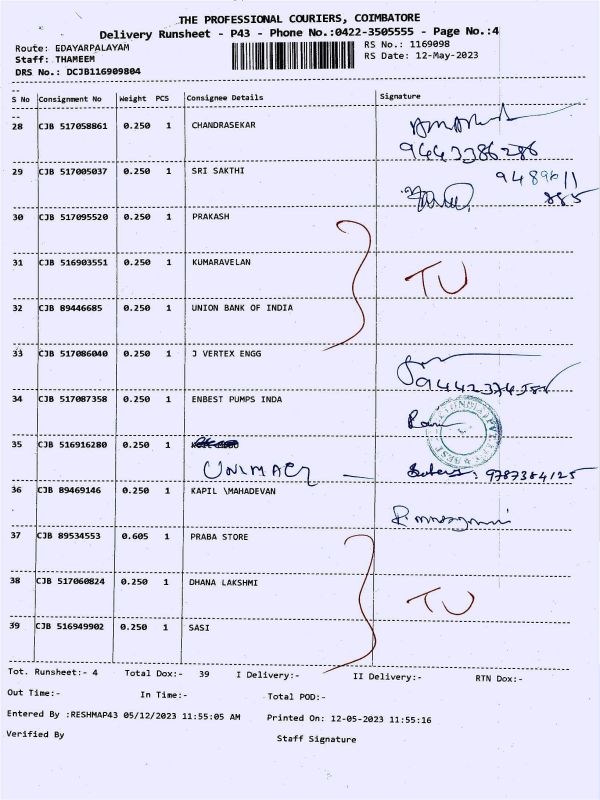 THE PROFESSIONAL COURIERS, COIMBATORE
Delivery Runsheet - P43 - Phone No.:0422-3505555 - Page No.:4
Route: EDAYARPALAYAM RS No.: 1169098
Staff: THAMEEM RS Date: 12-May-2023
DRS No.: DCJB116909804
S No Consignment No Weight PCS Consignee Details Signature
28 CJB 517058861 0.250 1 CHANDRASEKAR
9443386286
29 CJB 517005037 0.250 1 SRI SAKTHI 9489611
885
30 CJB 517095520 0.250 1 PRAKASH
31 CJB 516903551 0.250 1 KUMARAVELAN TU
32 CJB 89446685 0.250 1 UNION BANK OF INDIA
33 CJB 517086040 0.250 1 J VERTEX ENGG
34 CJB 517087358 0.250 1 ENBEST PUMPS INDA
35 CJB 516916280 0.250 1
UNIMACT 9787384125
36 CJB 89469146 0.250 1 KAPIL \MAHADEVAN
37 CJB 89534553 0.605 1 PRABA STORE
38 CJB 517060824 0.250 1 DHANA LAKSHMI TU
39 CJB 516949902 0.250 1 SASI
Tot. Runsheet:- 4 Total Dox:- 39 I Delivery:- II Delivery:- RTN Dox:-
Out Time:- In Time:- Total POD:-
Entered By :RESHMAP43 05/12/2023 11:55:05 AM Printed On: 12-05-2023 11:55:16
Verified By Staff Signature